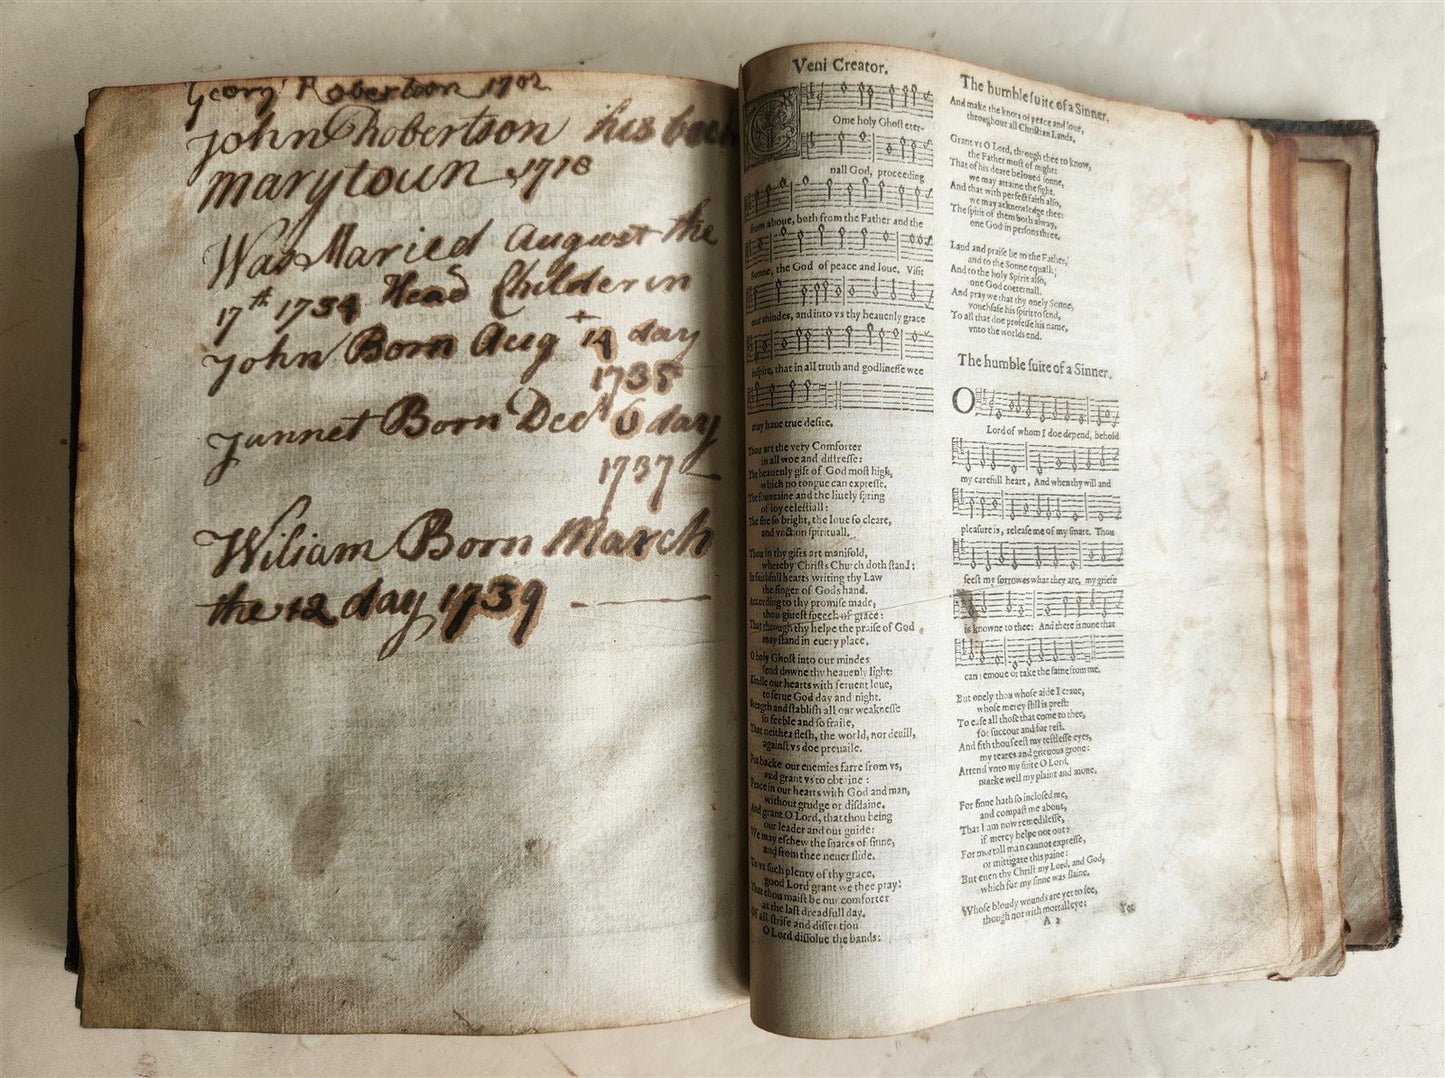 Georg Robertson 1702
John Robertson his book
marytoun 1718
Was Maried August the
17th 1734 Head Childer in
John Born Aug 14 day
1735
Jannet Born Decr 6 day
1737
Wiliam Born March
the 12 day 1739
Veni Creator.
COme holy Ghost eter-
nall God, proceeding
from aboue, both from the Father and the
Sonne, the God of peace and loue. Visit
our mindes, and into vs thy heauenly grace
inspire, that in all truth and godlinesse wee
may haue true desire.
Thou art the very Comforter
in all woe and distresse:
The heauenly gift of God most high,
which no tongue can expresse.
The fountaine and the liuely spring
of ioy celestiall:
The fire so bright, the loue so cleare,
and vnction spirituall.
Thou in thy gifts art manifold,
whereby Christs Church doth stand:
In faithfull hearts writing thy Law
the finger of Gods hand.
According to thy promise made,
thou giuest speech of grace:
That through thy helpe the praise of God
may stand in euery place.
O holy Ghost into our mindes
send downe thy heauenly light:
Kindle our hearts with feruent loue,
to serue God day and night.
Strength and stablish all our weaknesse
so feeble and so fraile,
That neither flesh, the world, nor deuill,
against vs doe preuaile.
Put backe our enemies farre from vs,
and grant vs to obtaine:
Peace in our hearts with God and man,
without grudge or disdaine.
And grant O Lord, that thou being
our leader and our guide:
We may eschew the snares of sinne,
and from thee neuer slide.
To vs such plenty of thy grace,
good Lord grant we thee pray:
That thou maist be our comforter
at the last dreadfull day.
Of all strife and dissention
O Lord dissolue the bands:
The humble suite of a Sinner.
And make the knots of peace and loue,
throughout all Christian Lands.
Grant vs O Lord, through thee to know,
the Father most of might:
That of his deare beloued sonne,
we may attaine the sight.
And that with perfect faith also,
we may acknowledge thee:
The spirit of them both alway,
one God in persons three.
Laud and praise be to the Father,
and to the Sonne equall:
And to the holy Spirit also,
one God coeternall.
And pray we that thy onely Sonne,
vouchsafe his spirit to send,
To all that doe professe his name,
vnto the worlds end.
The humble suite of a Sinner.
O
Lord of whom I doe depend, behold
my carefull heart, And when thy will and
pleasure is, release me of my smart. Thou
seest my sorrowes what they are, my griefe
is knowne to thee: And there is none that
can remoue or take the same from me.
But onely thou whose aide I craue,
whose mercy still is prest:
To ease all those that come to thee,
for succour and for rest.
And sith thou seest my restlesse eyes,
my teares and grieuous grone:
Attend vnto my suite O Lord,
marke well my plaint and mone,
For sinne hath so inclosed me,
and compast me about,
That I am now remedilesse,
if mercy helpe not out:
For mortall man cannot expresse,
or mittigate this paine:
But euen thy Christ my Lord, and God,
which for my sinne was slaine.
Whose bloudy wounds are yet to see,
though not with mortall eye:
A 2
Yet